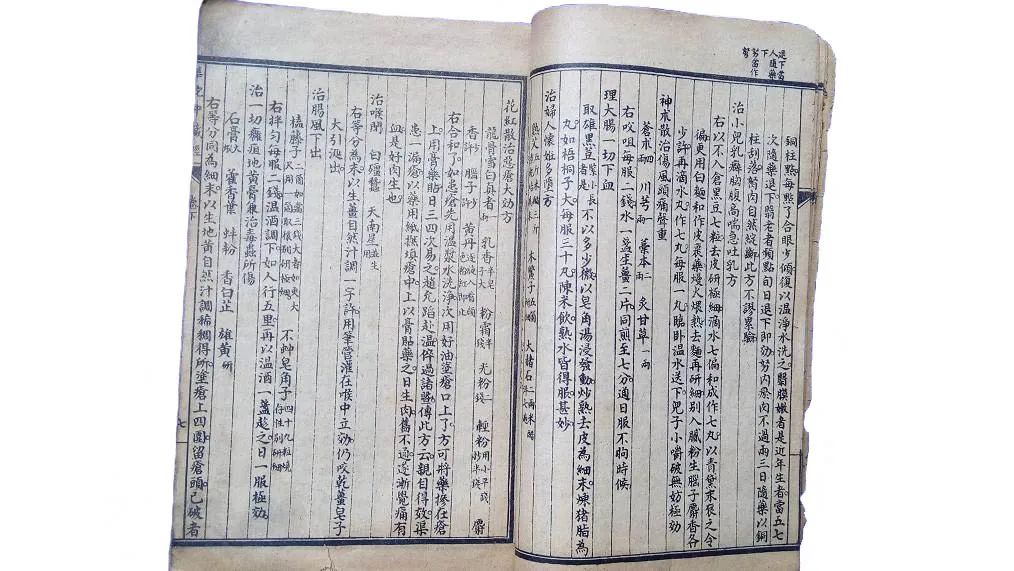 退下當
人隨藥
下
努當作
銅柱點每點了合眼少傾復以温淨水洗之翳膜嫩者是近年生者當五七
次隨藥退下翳老者頻點旬日退下即効努内瘀肉不過兩三日隨藥以銅
柱刮落筋肉自然綻斷此方不謬累驗
治小兒乳癖胸腹高喘急吐乳方
右以不入倉黑豆七粒去皮研極細滴水七徧和成作七丸以青黛末衮之令
偏更用白麵和作皮衮藥慢火煨熟去麵再研細别入膩粉生腦子麝香各
少許再滴水丸作七丸每服一丸臨卧温水送下兒子小嚼破無妨極効
神朮散治傷風頭痛聲重
蒼朮四兩 川芎一兩 藁本二兩 炙甘草一兩
右㕮咀每服二錢水一盞生薑三片同煎至七分通日服不拘時候
理大腸一切下血
取雄黑豆緊小者是不以多少微以皂角湯浸發動炒熟去皮為細末煉猪脂為
丸如梧桐子大每服三十丸陳米飲熟水皆得服甚妙
治婦人懷姙多墮方
花紅散治惡瘡大効方
龍骨雪白真者一兩 乳香半皂子大 粉霜半錢 光粉二錢 輕粉用小平錢抄半錢 麝
香少許 腦子少許 黄丹
右合和了如患瘡先用温漿水洗淨次用好油塗瘡口上了方可將藥摻在瘡
上用膏藥貼日三四次易之趙允蹈赴温倅過諸曁傅此方云親目得效渠
患一漏瘡以藥用紙撚填瘡中上以膏貼藥之日生肉舊不過逐漸覺痛有
血是好肉生也
治喉閉 白殭蠶 天南星並生用
右等分為末以生薑自然汁調一字許用筆管灌在喉中立効仍咬乾薑皂子
大引涎出
治腸風下出
榼藤子 不蛀皂角子四十九粒燒存性别研細
右拌匀每服二錢温酒調下如人行五里再以温酒一盞趂之日一服極効
治一切癰疽地黄膏兼治毒蟲所傷
石膏火煅 藿香葉 蚌粉 香白芷 雄黄研
右等分同為細末以生地黄自然汁調稀稠得所塗瘡上四圍留瘡頭已破者
卷下
七